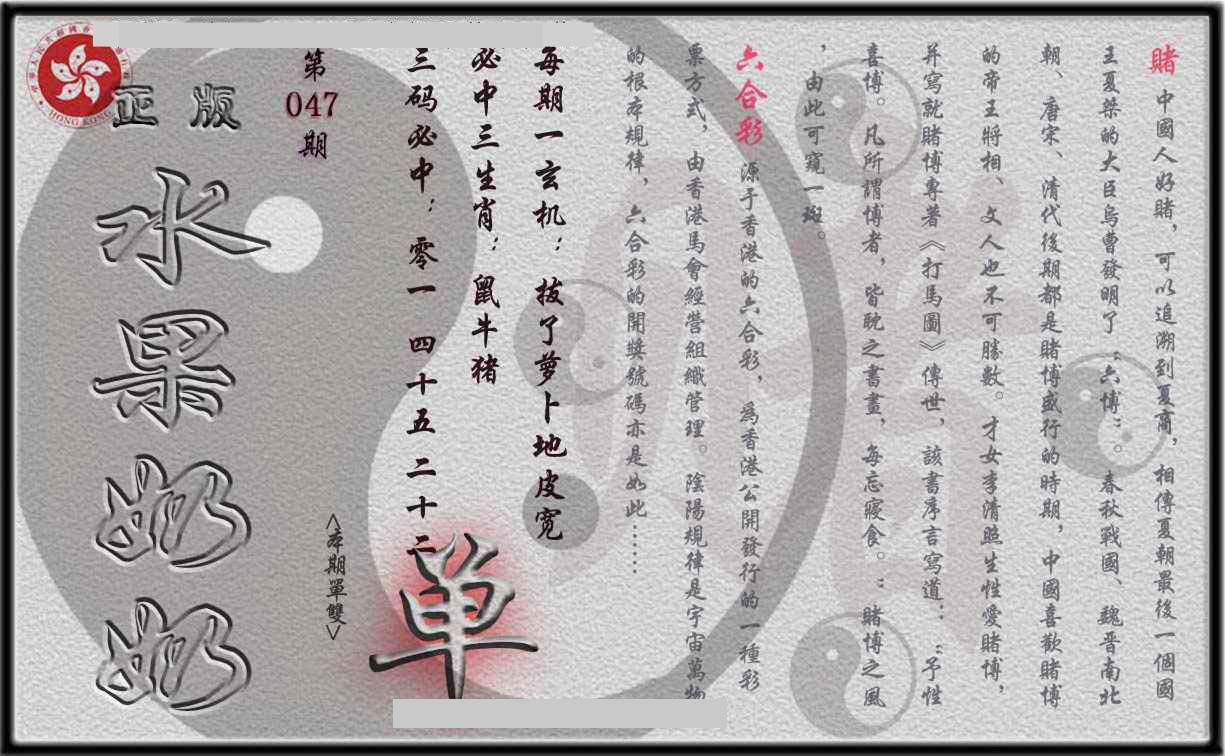 賭 中國人好賭，可以追溯到夏商，相傳夏朝最後一個國
王夏桀的大臣烏曹發明了“六博”。春秋戰國、魏晋南北
朝、唐宋、清代後期都是賭博盛行的時期，中國喜歡賭博
的帝王將相、文人也不可勝數。才女李清照生性愛賭博，
并寫就賭博專著《打馬圖》傳世，該書序言寫道：“予性
喜博。凡所謂博者，皆耽之書畫，每忘寢食。”賭博之風
，由此可窺一斑。
六合彩 源于香港的六合彩，爲香港公開發行的一種彩
票方式，由香港馬會經營組織管理。陰陽規律是宇宙萬物
的根本規律，六合彩的開獎號碼亦是如此……
每期一玄机：拔了萝卜地皮宽
必中三生肖：鼠牛猪
三码必中：零一 四十五 二十二
單
<本期單雙>
第
047
期
正版
水果奶奶
HONG KONG